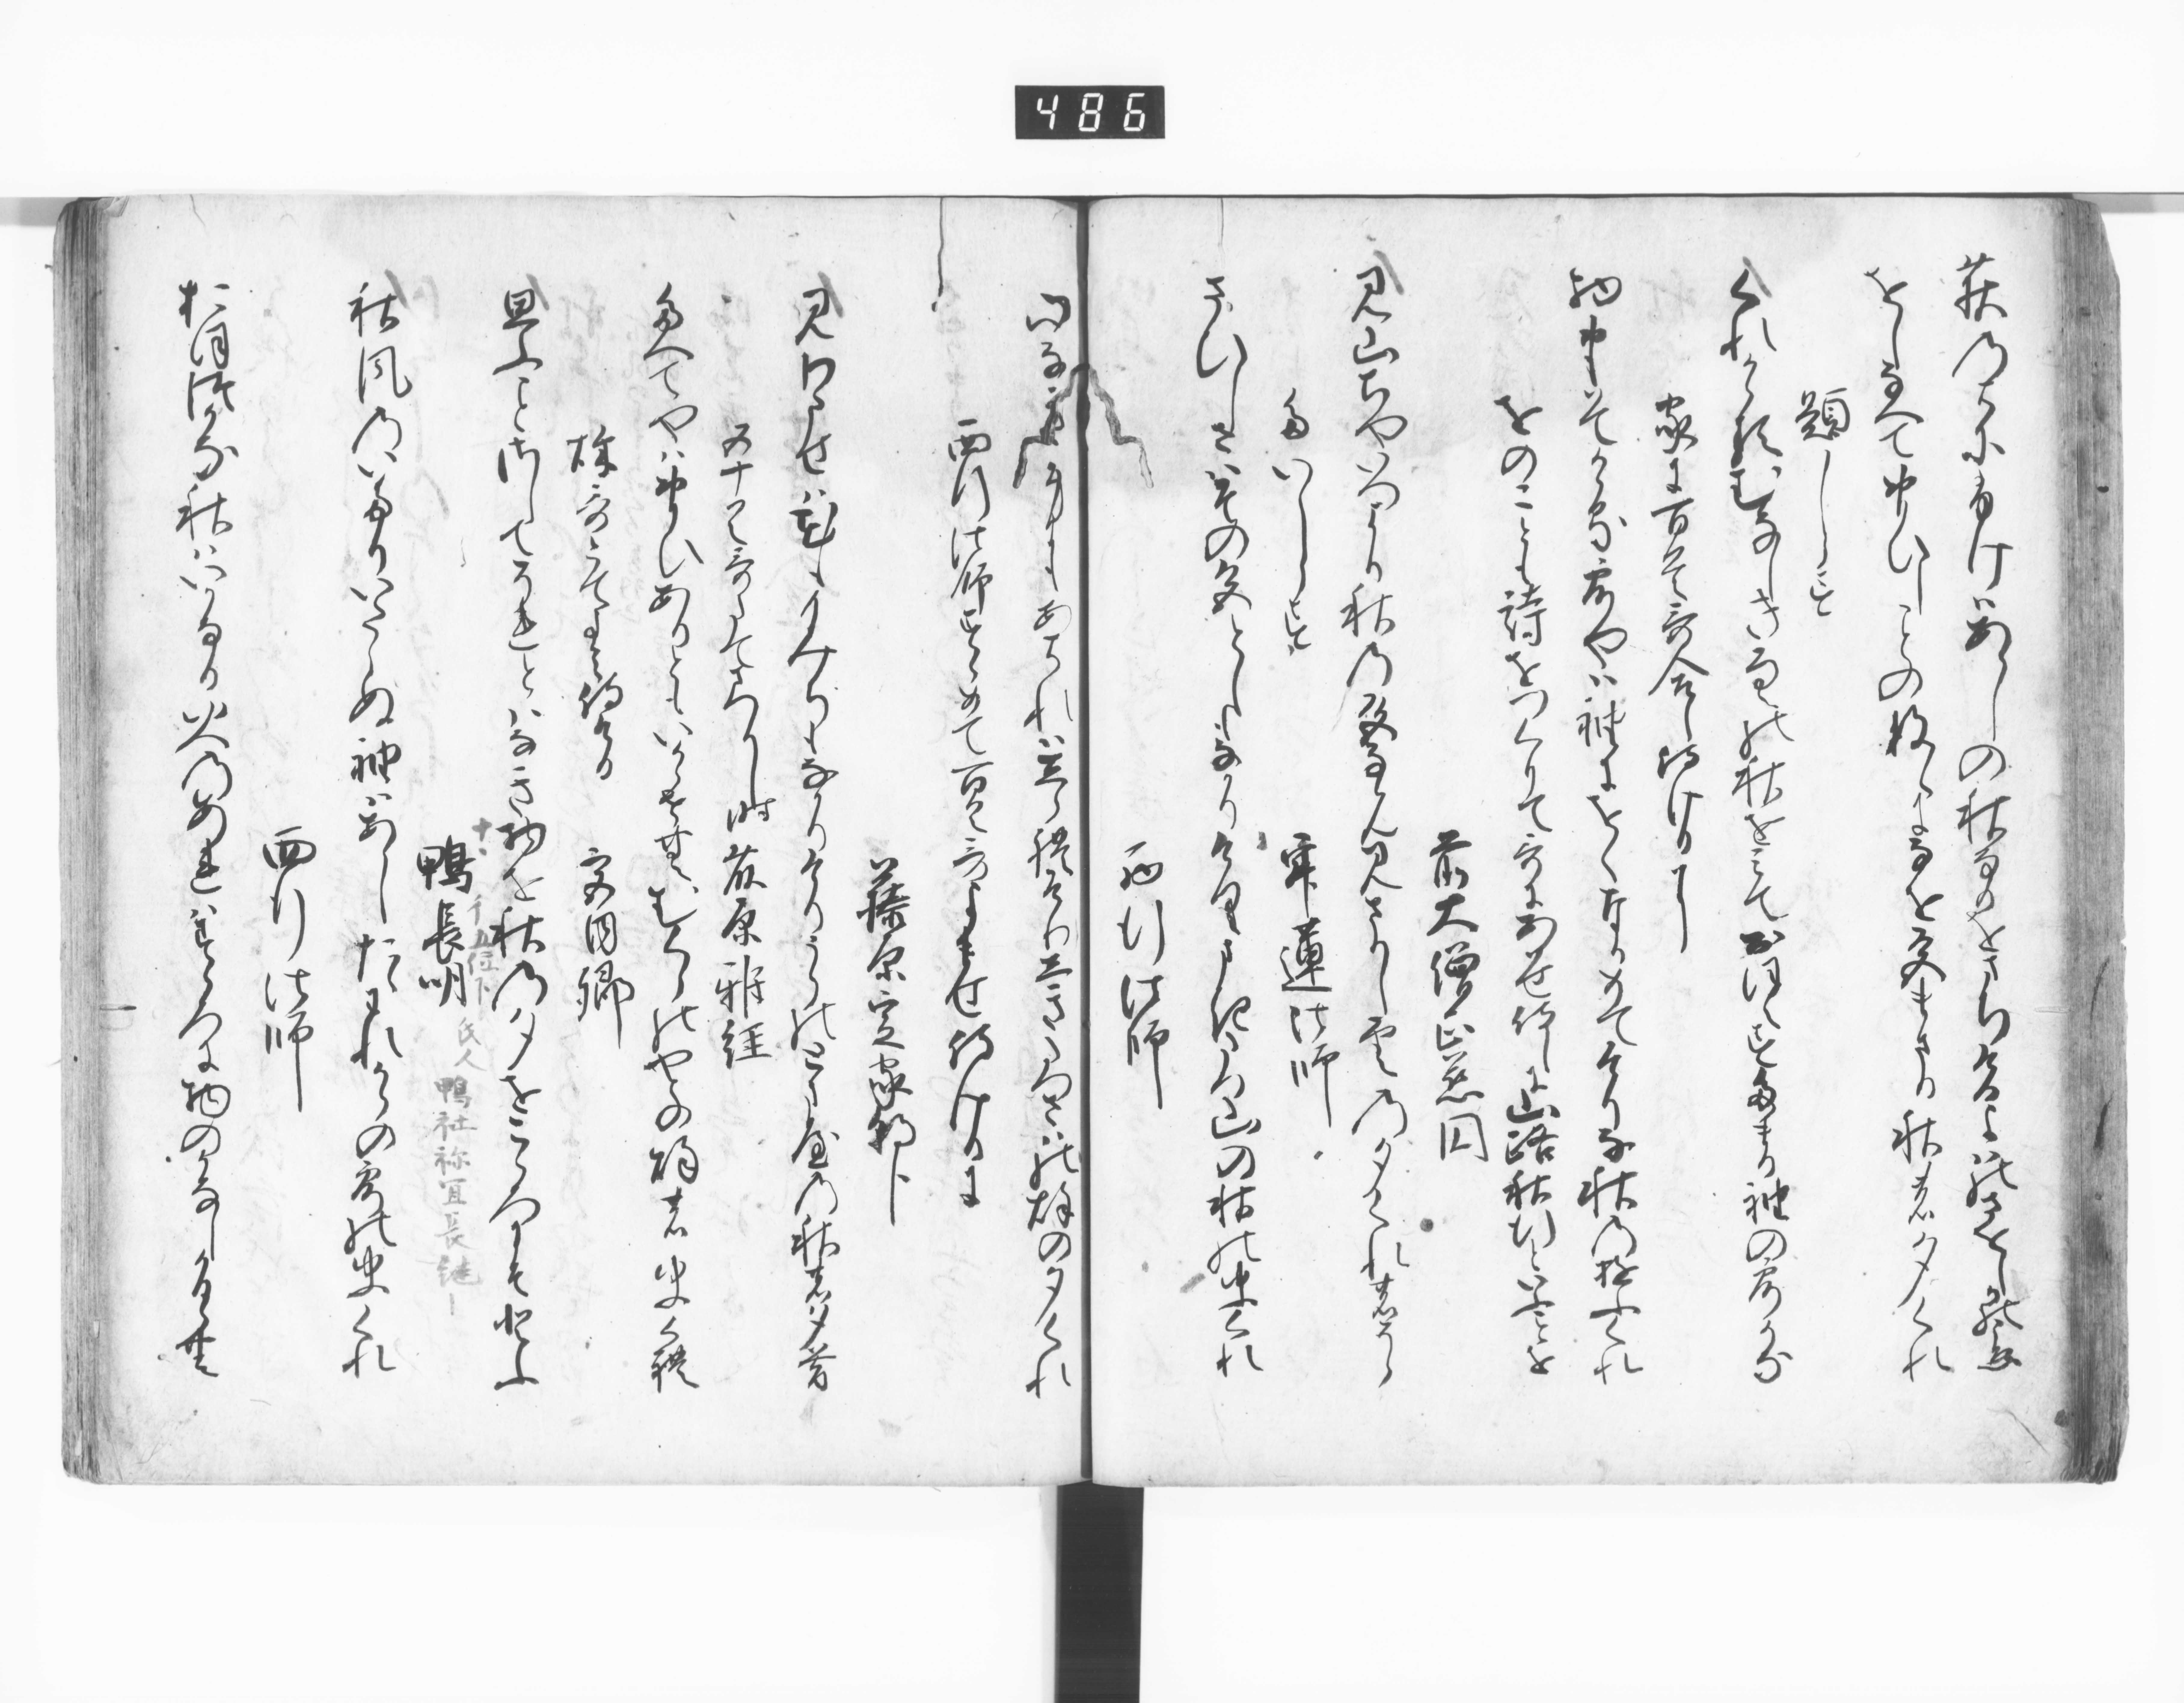 荻乃葉にふけはあらしの秋なるをまちけるよはのさをしかのこゑ
をしなへておもひしことの数〳〵になを色まさる秋の夕くれ
題しらす
くれかゝるむなしきそらの秋をみておほえすたまる袖の露かな
家に百首哥合し侍けるに
物おもはてかゝる露やは袖にをくなかめてけりな秋乃ゆふくれ
をのことも詩をつくりて哥にあはせ侍しに山路秋行といふことを
前大僧正慈円
見山ちやいつより秋乃色ならん見さりし雲乃夕くれのそら
たいしらす
寂蓮法師
さひしさはその色としもなかりけりまき立山の秋のゆふくれ
西行法師
心なき身にもあはれはしられけりしきたつさはの秋の夕くれ
西行法師すゝめて百首哥よませ侍けるに
藤原定家朝臣
見わたせは花ももみちもなかりけりうらのとま屋乃秋の夕暮
五十首哥たてまつりし時　藤原雅経
たへてやはおもひありともいかゝせむむくらのやとの秋のゆふくれ
秋哥とてよみ侍ける　宮内卿
思ふことさしてそれとはなき物を秋乃夕をこゝろにそとふ
鴨長明
従五位下 氏人 鴨社祢宜長継
秋風乃いたりいたらぬ袖はあらしたゝわれからの露のゆふくれ
西行法師
おほつかな秋はいかなるゆへのあれはすゝろに物のかなしかるらむ